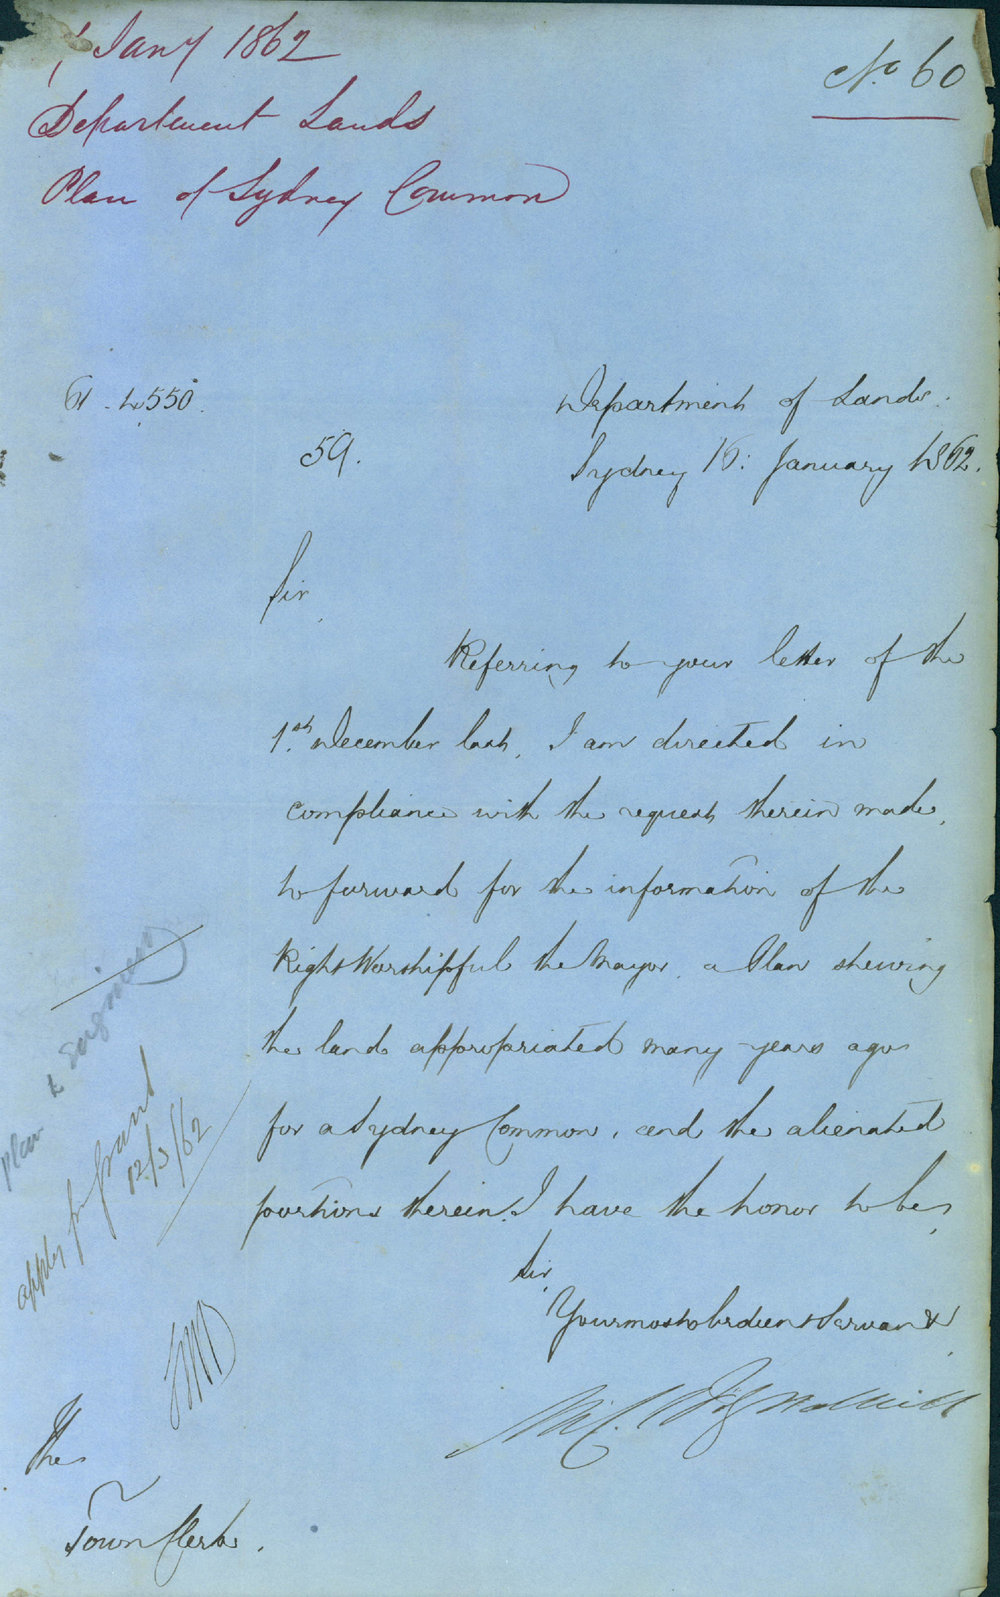 Jany 1862
No 60
Department Lands
Plan of Sydney Common
61 - 4550.
Department of Lands.
59.
Sydney 16: January 1862.
Sir,
Referring to your letter of the
1st December last, I am directed in
compliance with the request therein made,
to forward for the information of the
Right Worshipful the Mayor, a Plan shewing
the land appropriated many years ago
for a Sydney Common, and the alienated
portions therein. I have the honor to be,
Sir,
Your most obedient Servant
Mic. Fitzpatrick
Plan to Engineer
apply for grant
12/3/62
The
Town Clerk.